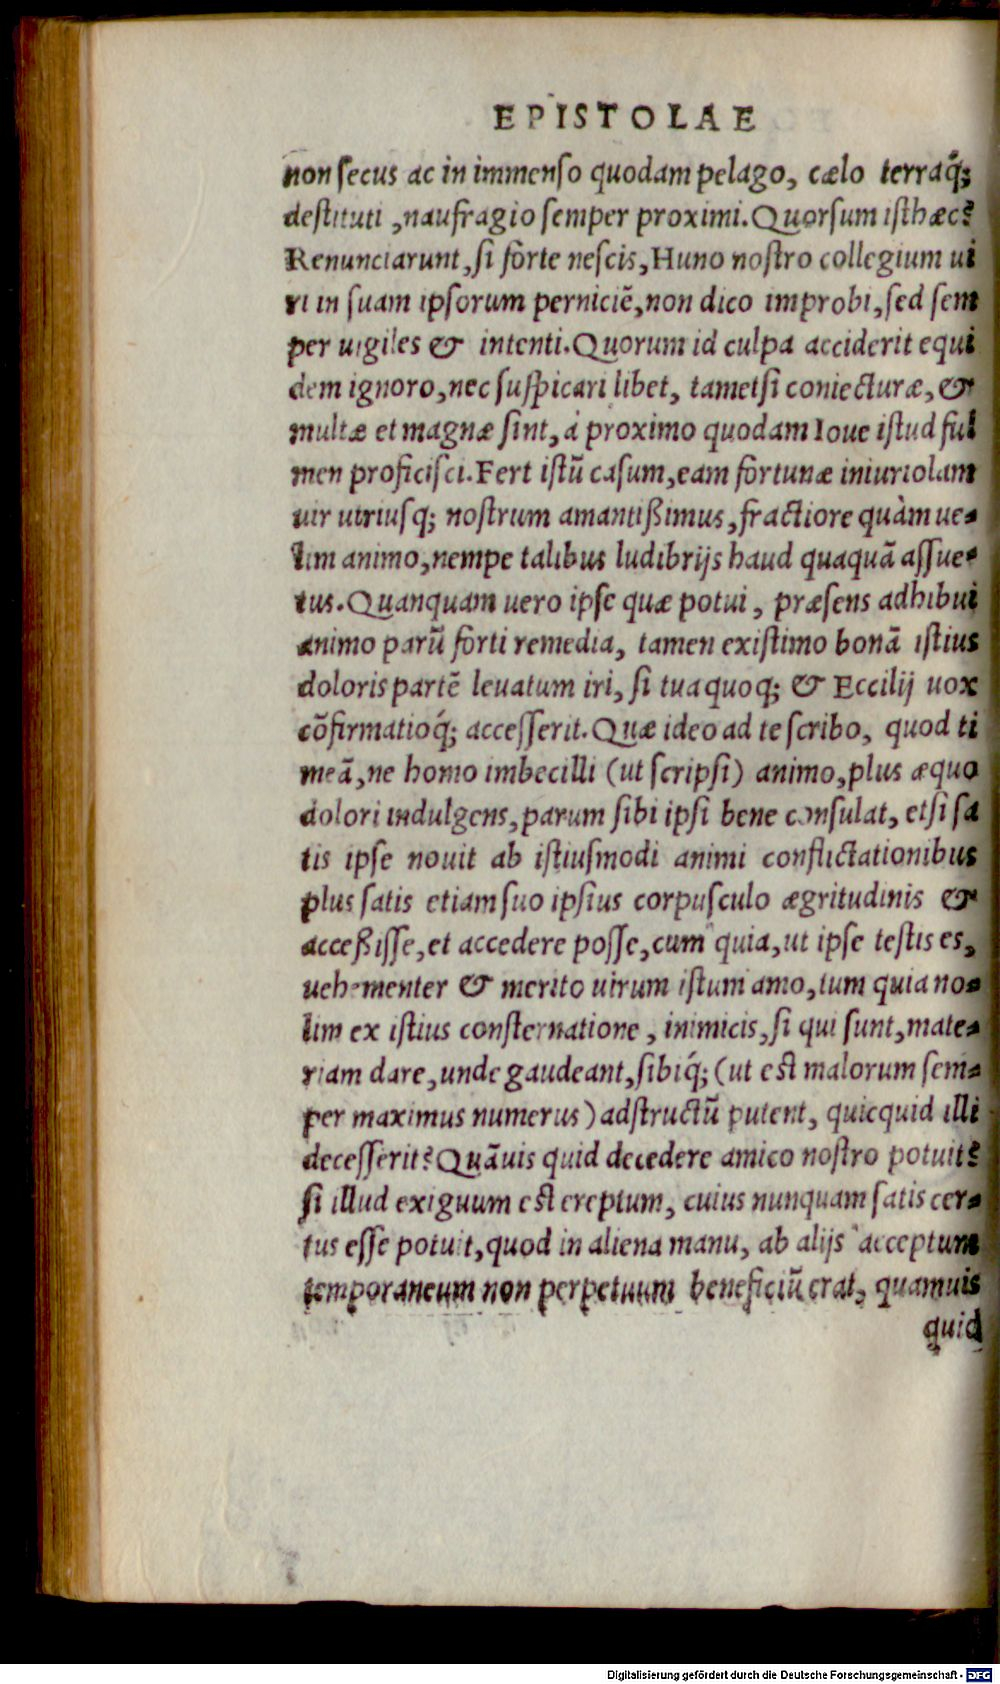 EPISTOLAE
non secus ac in immenso quodam pelago, cælo terraq́;
destituti, naufragio semper proximi. Quorsum isthæc?
Renunciarunt, si forte nescis, Huno nostro collegium ui
ri in suam ipsorum perniciē, non dico improbi, sed sem
per uigiles & intenti. Quorum id culpa acciderit equi
dem ignoro, nec suspicari libet, tametsi coniecturæ, &
multæ et magnæ sint, à proximo quodam Ioue istud ful
men proficisci. Fert istū casum, eam fortunæ iniuriolam
uir utriusq; nostrum amantißimus, fractiore quàm ue-
lim animo, nempe talibus ludibrijs haud quaquā assue-
tus. Quanquam uero ipse quæ potui, præsens adhibui
animo parū forti remedia, tamen existimo bonā istius
doloris partē leuatum iri, si tua quoq; & Eccilij uox
cōfirmatioq́; accesserit. Quæ ideo ad te scribo, quod ti
meā, ne homo imbecilli (ut scripsi) animo, plus æquo
dolori indulgens, parum sibi ipsi bene consulat, etsi sa
tis ipse nouit ab istiusmodi animi conflictationibus
plus satis etiam suo ipsius corpusculo ægritudinis &
acceßisse, et accedere posse, cum quia, ut ipse testis es,
uehementer & merito uirum istum amo, tum quia no-
lim ex istius consternatione, inimicis, si qui sunt, mate-
riam dare, unde gaudeant, sibiq́; (ut est malorum sem-
per maximus numerus) adstructū putent, quicquid illi
decesserit? Quāuis quid decedere amico nostro potuit?
si illud exiguum est ereptum, cuius nunquam satis cer-
tus esse potuit, quod in aliena manu, ab alijs acceptum
temporaneum non perpetuum beneficiū erat, quamuis
quid
Digitalisierung gefördert durch die Deutsche Forschungsgemeinschaft - DFG